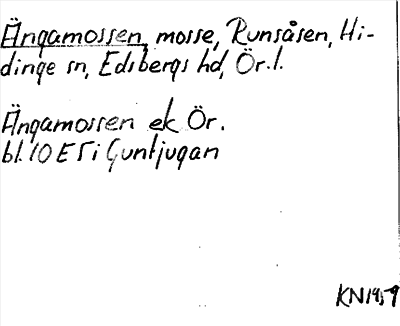 Ängamossen, mosse, Runsåsen, Hi-
dinge sn, Edsbergs hd, Ör. l.
Ängamossen ek Ör.
bl. 10 E i Guntjugan
KN 1959